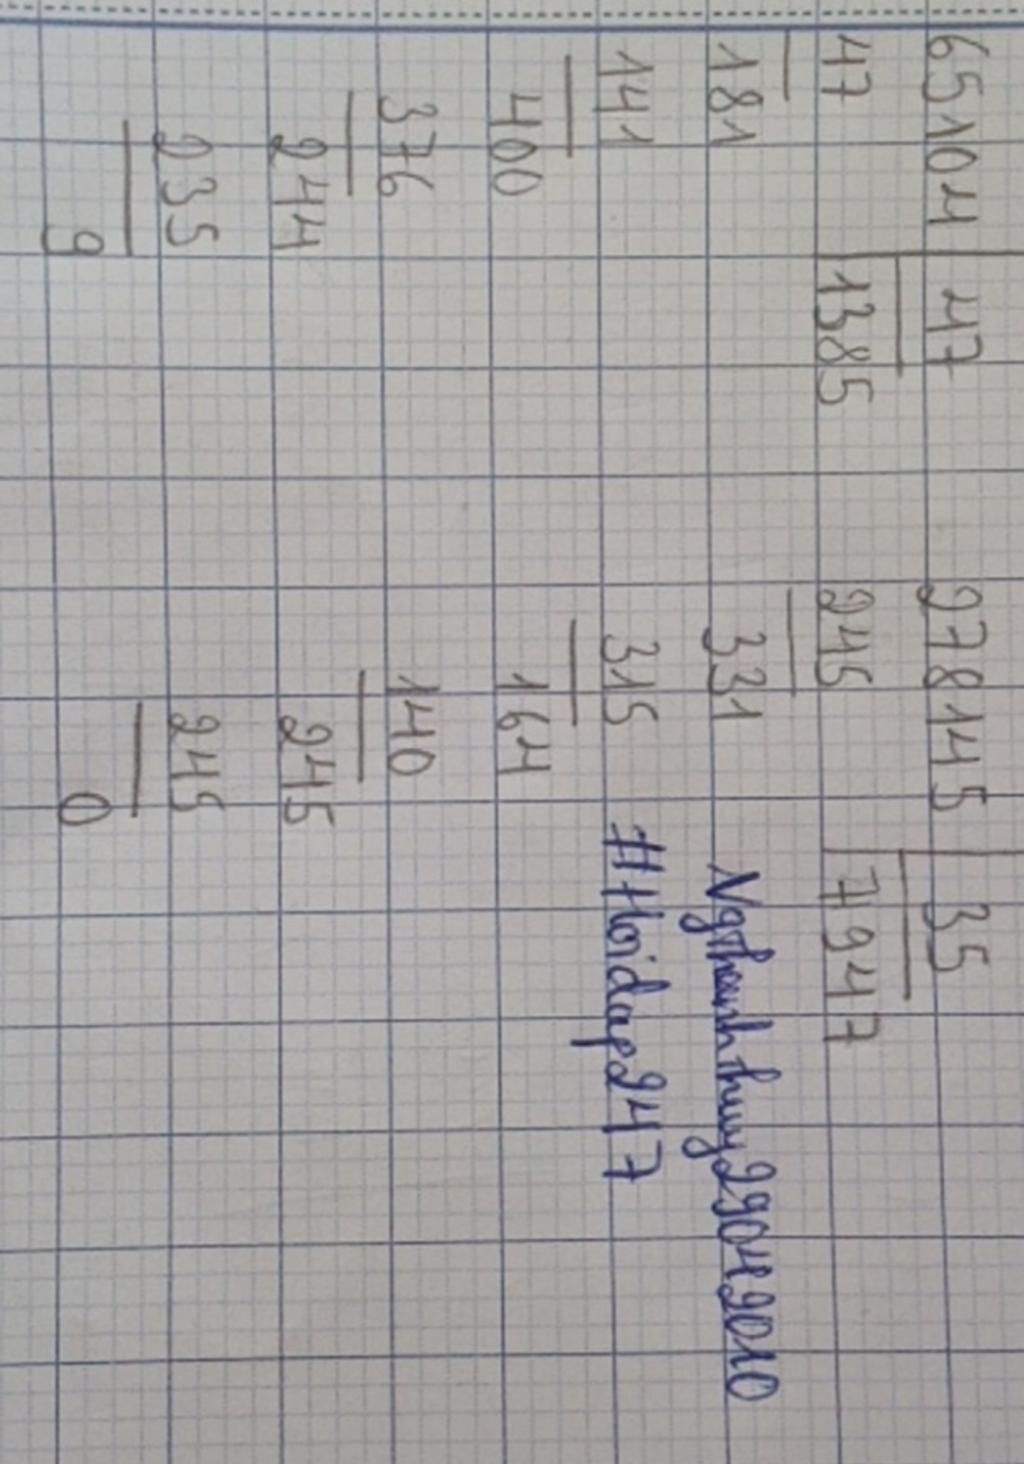 65104 47 278145 35
47 1385 245 7947
181 331 Ngthanhthuy29042010
141 315 #Hoidap247
400 164
376 140
244 245
235 245
9 0